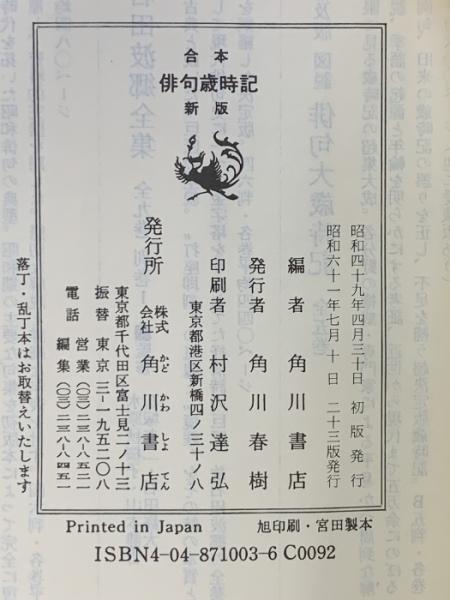 合本
俳句歳時記
新版
昭和四十九年四月三十日 初版発行
昭和六十一年七月十日 二十三版発行
編者 角川書店
発行者 角川春樹
印刷者 村沢達弘
東京都港区新橋四ノ三十ノ八
発行所 株式会社 角川書店
かど かわ しょ てん
東京都千代田区富士見二ノ十三
振替 東京 三―一九五二〇八
電話 営業(〇三)二三八―八五二一
編集(〇三)二三八―八四五一
落丁・乱丁本はお取替えいたします
Printed in Japan 旭印刷・宮田製本
ISBN4-04-871003-6 C0092